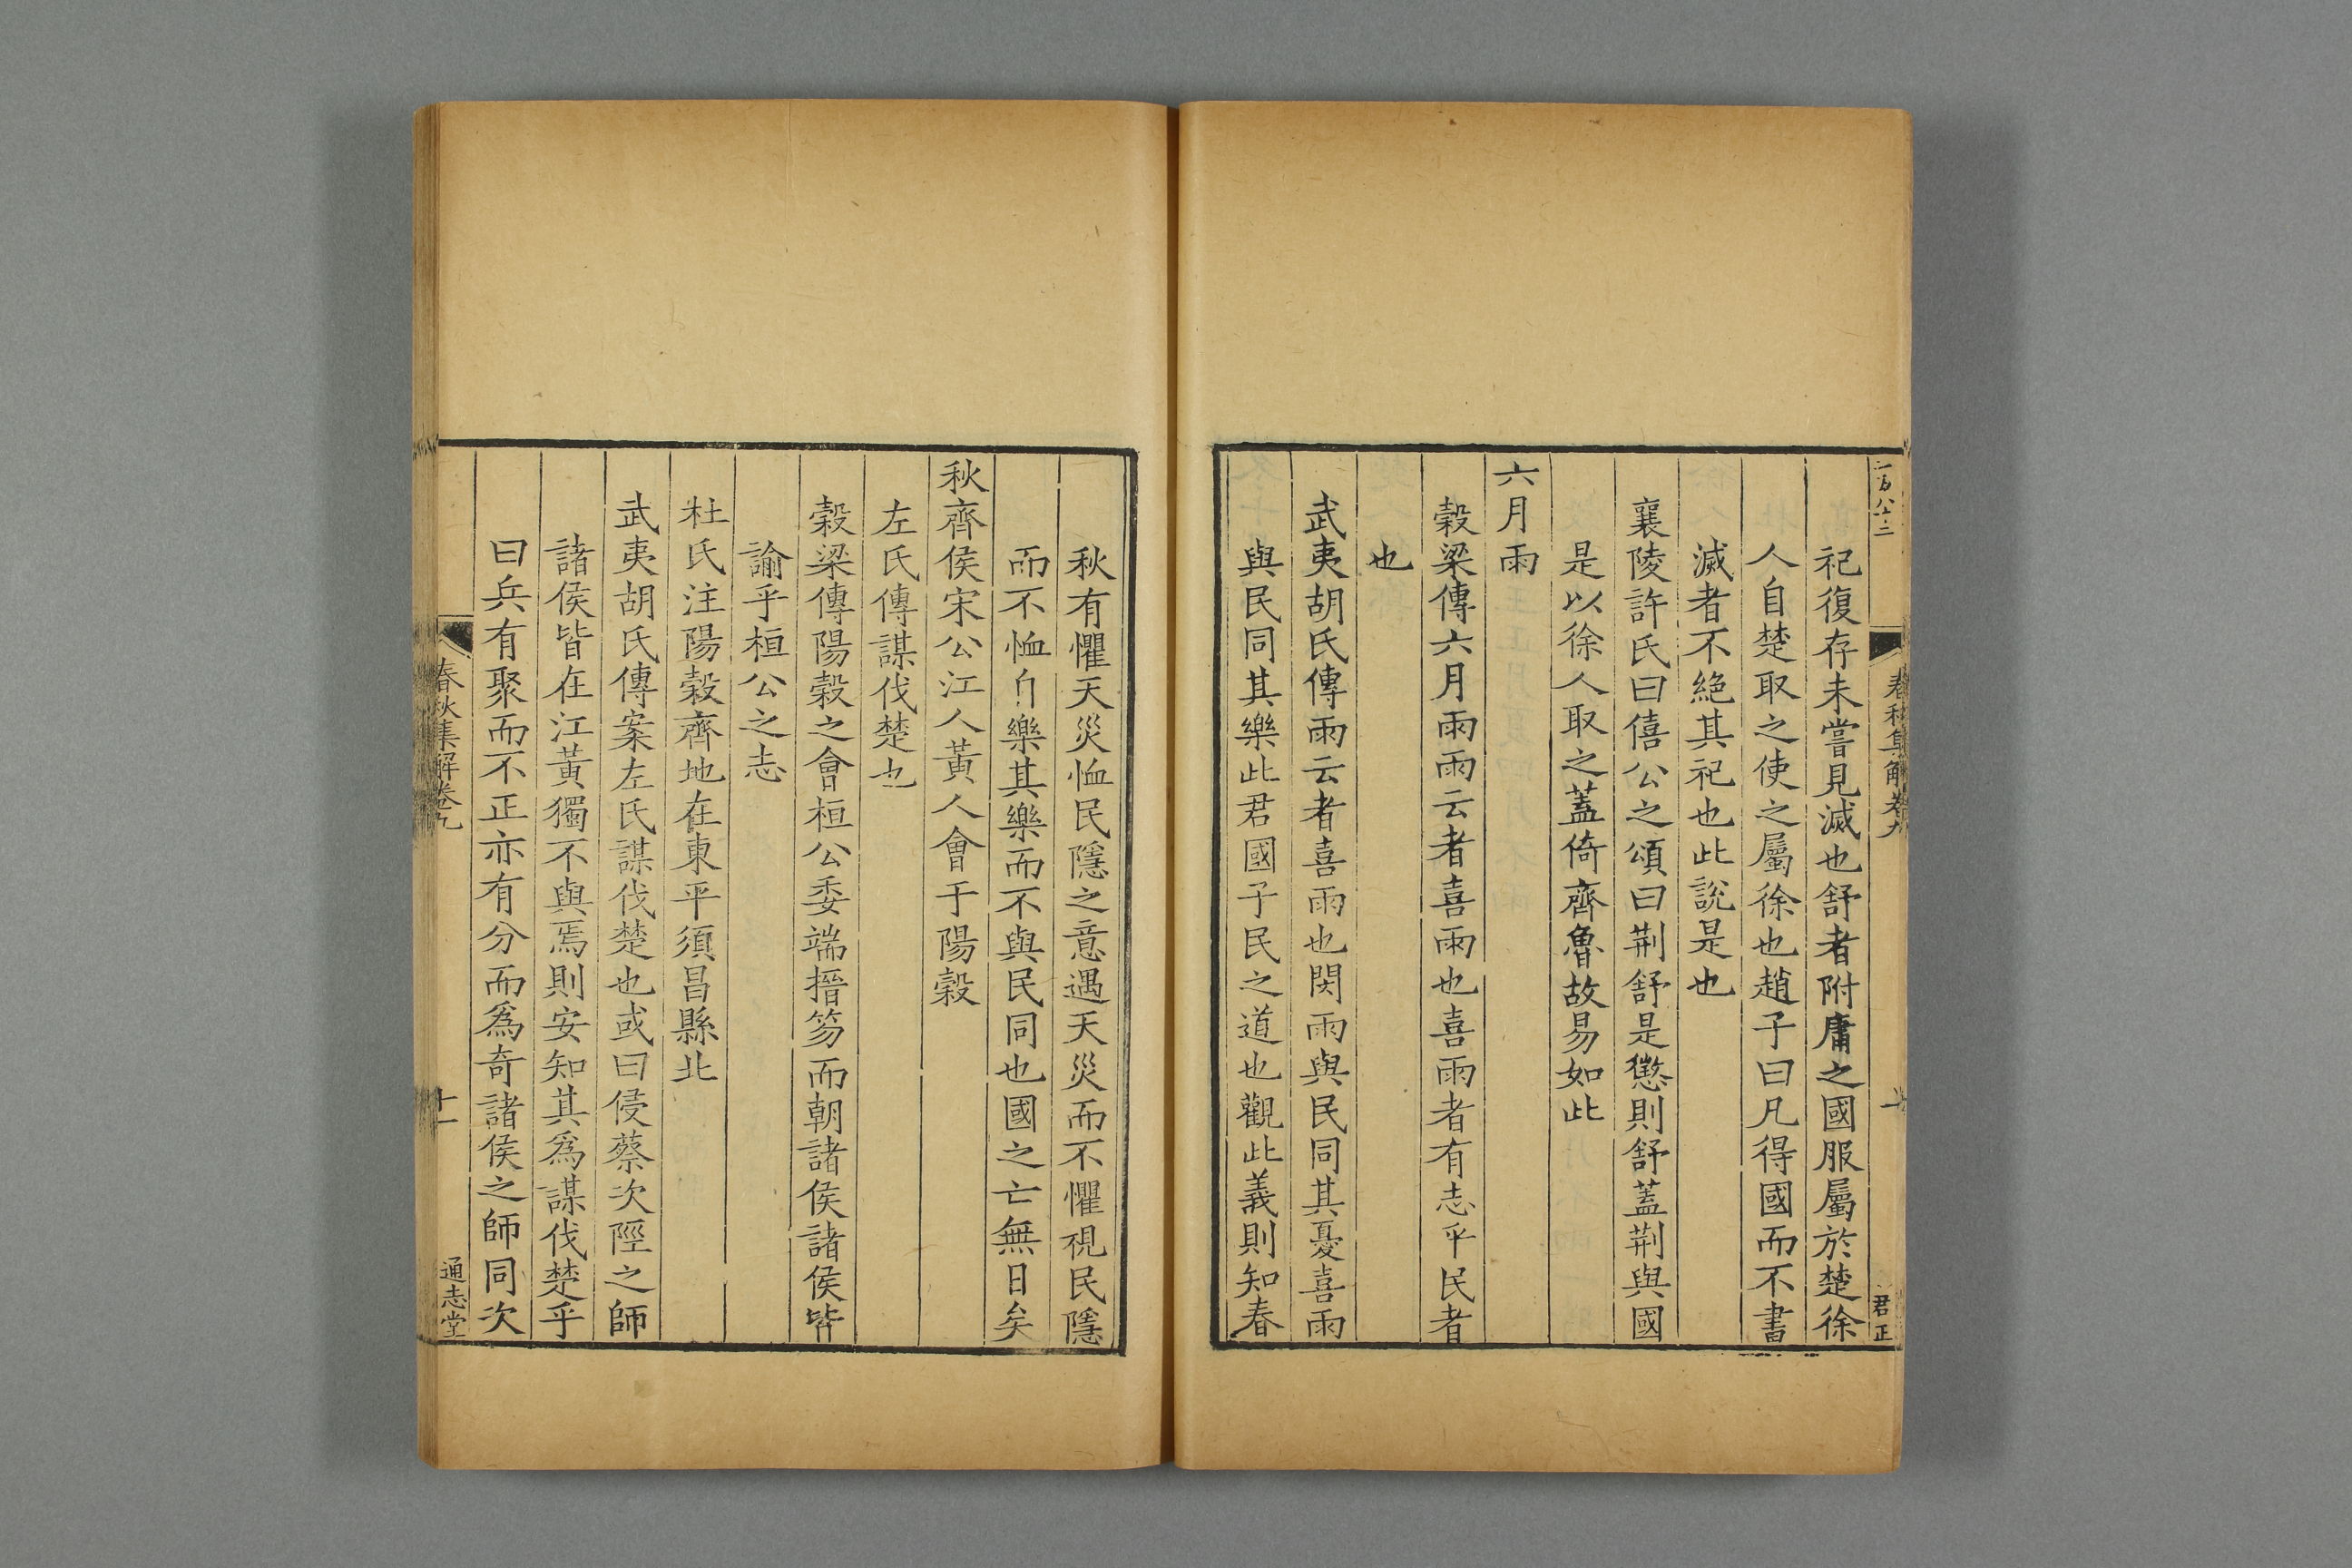 祀復存未嘗見滅也舒者附庸之國服屬於楚徐
人自楚取之使之屬徐也趙子曰凡得國而不書
滅者不絕其祀也此說是也
襄陵許氏曰僖公之頌曰荆舒是懲則舒蓋荆與國
是以徐人取之蓋倚齊魯故易如此
六月雨
穀梁傳六月雨雨云者喜雨也喜雨者有志乎民者
也
武夷胡氏傳雨云者喜雨也閔雨與民同其憂喜雨
與民同其樂此君國子民之道也觀此義則知春
秋有懼天災恤民隱之意遇天災而不懼視民隱
而不恤樂其樂而不與民同也國之亡無日矣
秋齊侯宋公江人黃人會于陽穀
左氏傳謀伐楚也
穀梁傳陽穀之會桓公委端搢笏而朝諸侯諸侯皆
諭乎桓公之志
杜氏注陽穀齊地在東平須昌縣北
武夷胡氏傳案左氏謀伐楚也或曰侵蔡次陘之師
諸侯皆在江黃獨不與焉則安知其爲謀伐楚乎
曰兵有聚而不正亦有分而爲奇諸侯之師同次
春秋集解卷九
十一
通志堂
春秋集解卷九
君正